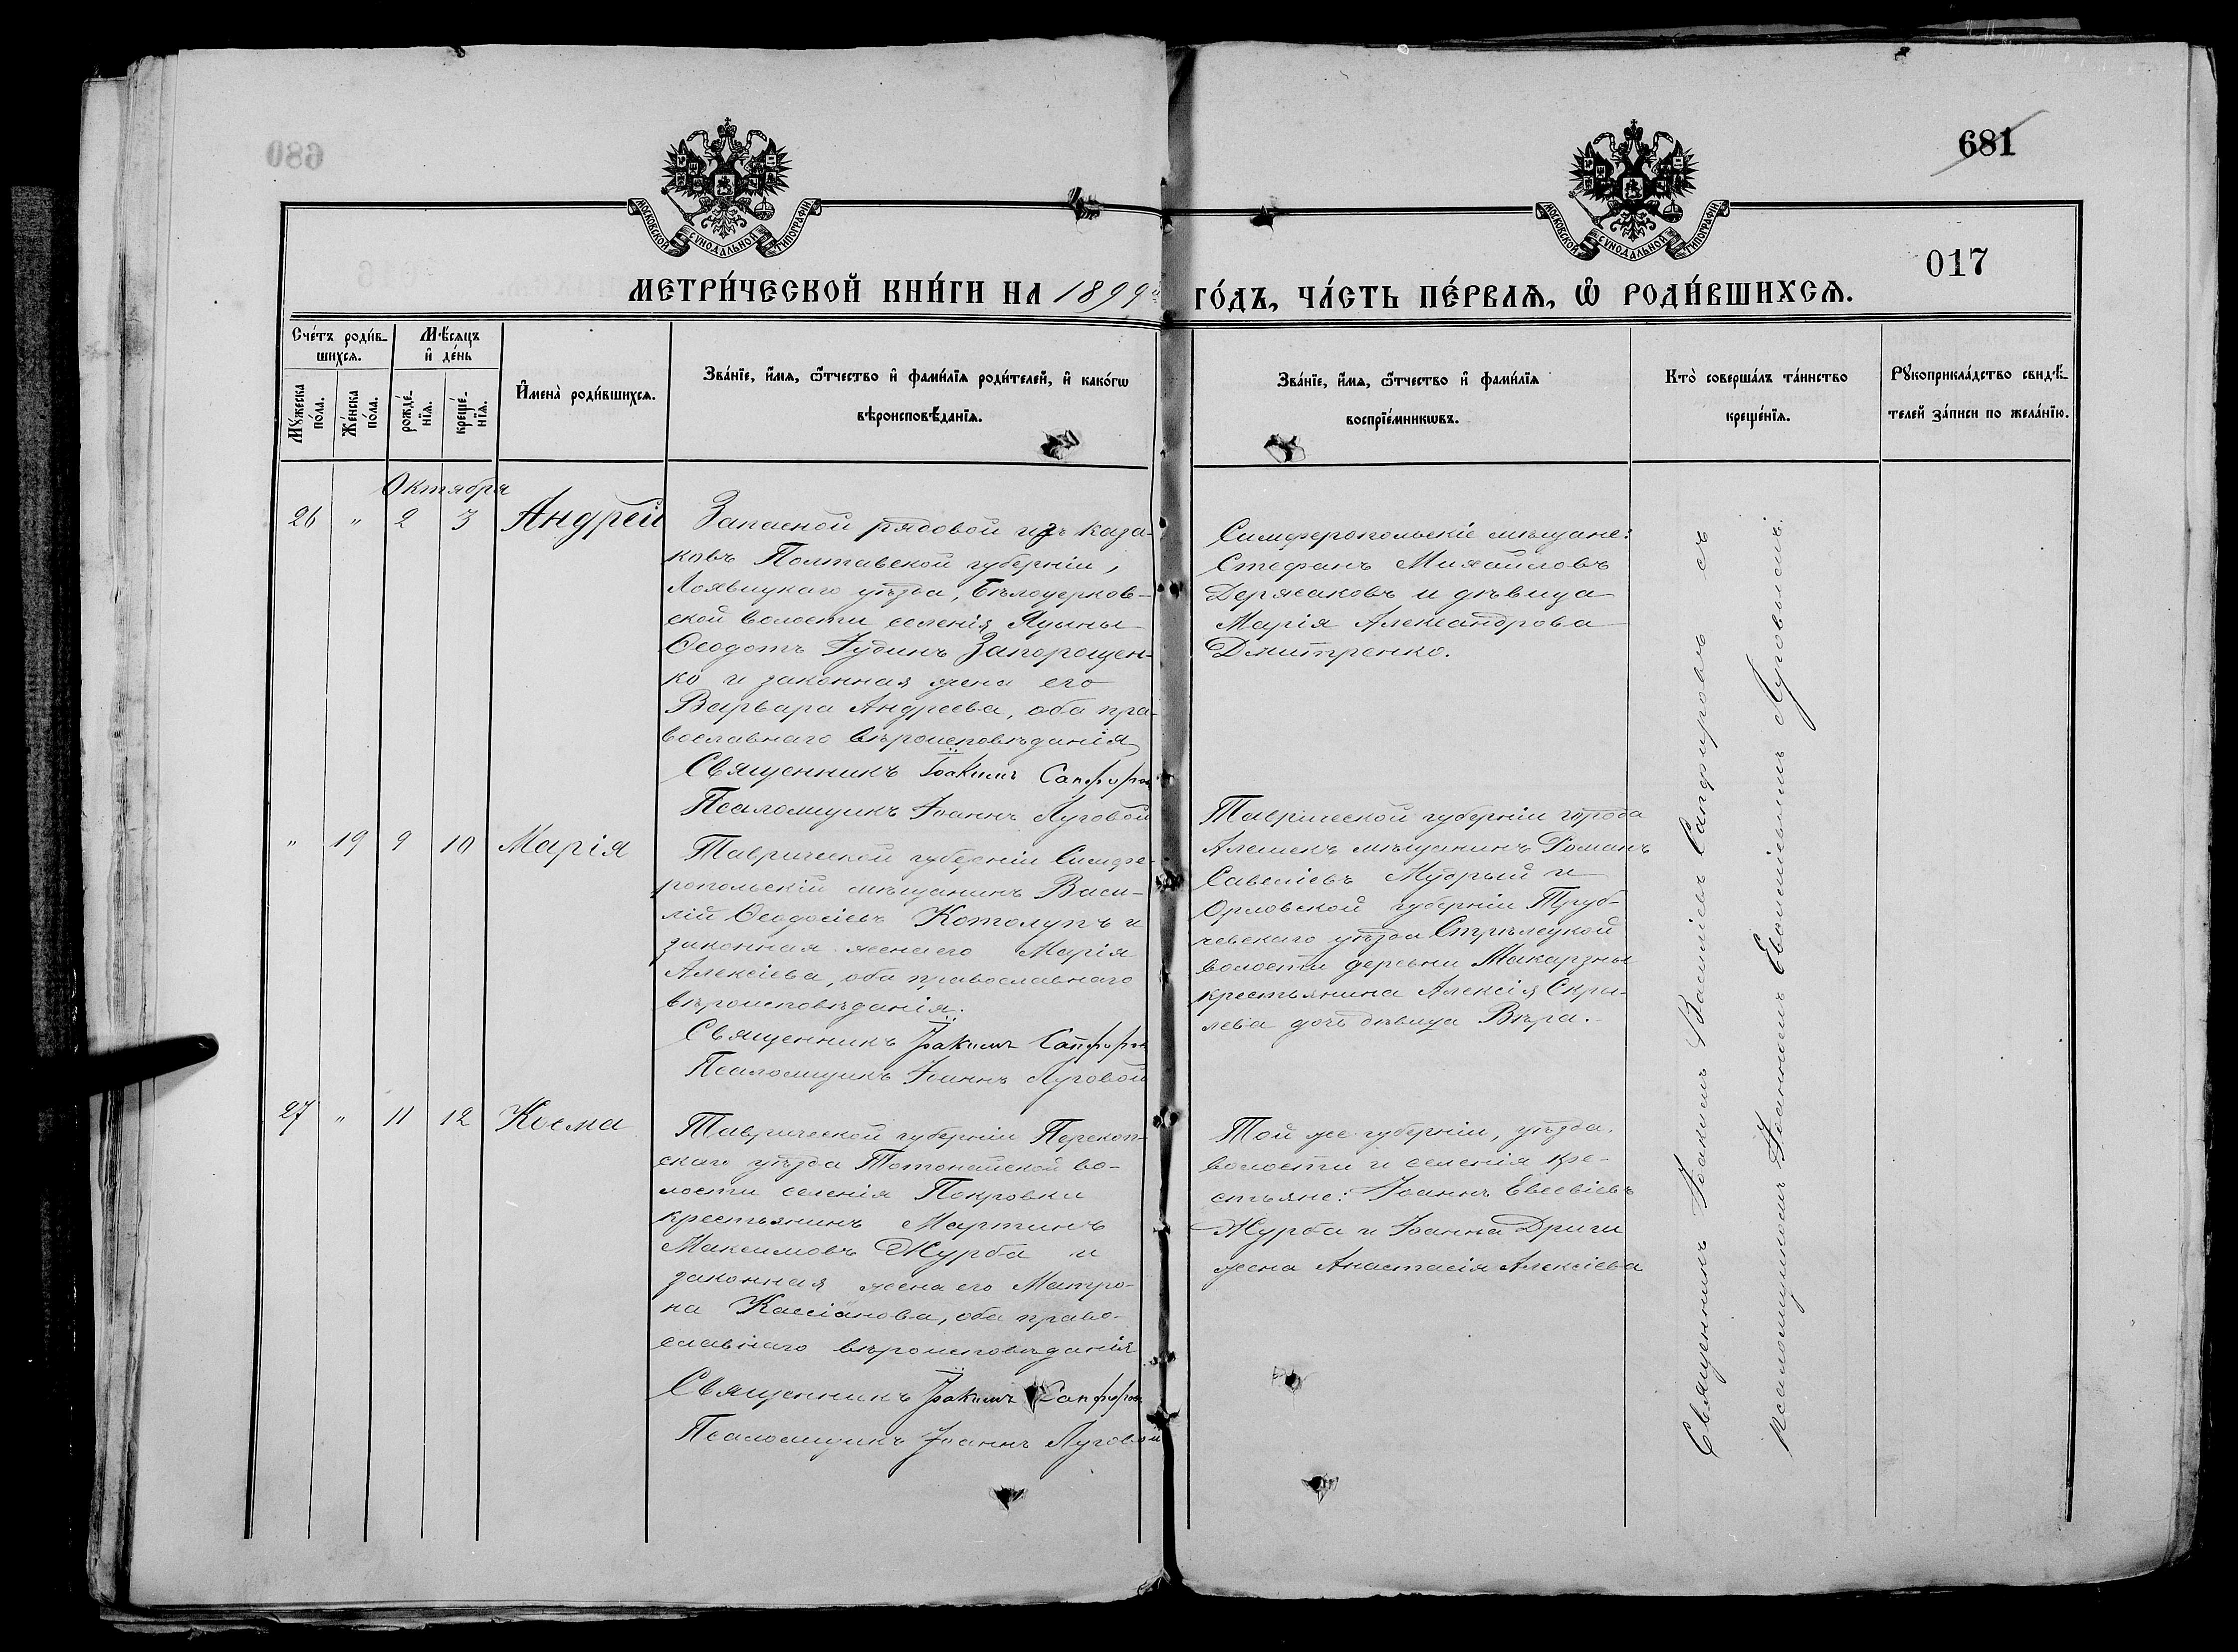 681
017
МОСКОВСКОЙ СѴНОДАЛЬНОЙ ТИПОГРАФІИ
МОСКОВСКОЙ СѴНОДАЛЬНОЙ ТИПОГРАФІИ
МЕТРИ́ЧЕСКОЙ КНИ́ГИ НА 1899й ГО́ДЪ, ЧА́СТЬ ПЕ́РВАѦ, Ѡ҆ РОДИ́ВШИХСѦ.
Сче́тъ роди́в-
шихсѧ.
Мѣ́сяцъ
и҆ де́нь
Мꙋ́жеска
по́ла.
Же́нска
по́ла.
рожде́-
нїѧ.
креще́-
нїѧ.
И҆мена̀ роди́вшихсѧ.
Зва́нїе, и҆́мѧ, ѻ҆́тчество и҆ фами́лїѧ роди́телей, и҆ како́гѡ
вѣроисповѣ́данїѧ.
Зва́нїе, и҆́мѧ, ѻ҆́тчество и҆ фами́лїѧ
воспрїе́мникѡвъ.
Кто̀ соверша́лъ та́инство
креще́нїѧ.
Рꙋкоприкла́дство свидѣ́-
телей за́писи по жела́нїю.
Октября
26 " 2 3 Андрей
Запасной рядовой изъ каза-
ковъ Полтавской губерніи,
Лохвицкаго уѣзда, Бѣлоцерков-
ской волости селенія Яцыны
Ѳеодотъ Іудинъ Запорощен-
ко и законная жена его
Варвара Андреева, оба пра-
вославнаго вѣроисповѣданія
Священникъ Іоакимъ Сапфиров
Псаломщикъ Іоаннъ Луговой
Симферопольскіе мѣщане:
Стефанъ Михайловъ
Держаковъ и дѣвица
Марія Александрова
Дмитренко.
" 19 9 10 Марія
Таврической губерніи Симфе-
ропольскій мѣщанинъ Васи-
лій Ѳеодосіевъ Котолупъ и
законная жена его Марія
Алексіева, оба православнаго
вѣроисповѣданія.
Священникъ Іоакимъ Сапфиров
Псаломщикъ Іоаннъ Луговой
Таврической губерніи города
Алешекъ мѣщанинъ Романъ
Савеліевъ Мудрый и
Орловской губерніи Труб-
чевскаго уѣзда Стрѣлецкой
волости деревни Макарзны
крестьянина Алексія Скры-
лева дочь дѣвица Вѣра.
27 " 11 12 Косма
Таврической губерніи Перекоп-
скаго уѣзда Тотонайской во-
лости селенія Покровки
крестьянинъ Мартинъ
Максимовъ Журба и
законная жена его Матро-
на Кассіанова, оба право-
славнаго вѣроисповѣданія
Священникъ Іоакимъ Сапфиров
Псаломщикъ Іоаннъ Луговой
Той же губерніи, уѣзда,
волости и селенія кре-
стьяне: Іоаннъ Евсевіевъ
Журба и Іоанна Дриги
жена Анастасія Алексіева
Священникъ Іоакимъ Василіевъ Сапфировъ съ
псаломщикомъ Іоанномъ Евсиміевымъ Луговымъ.